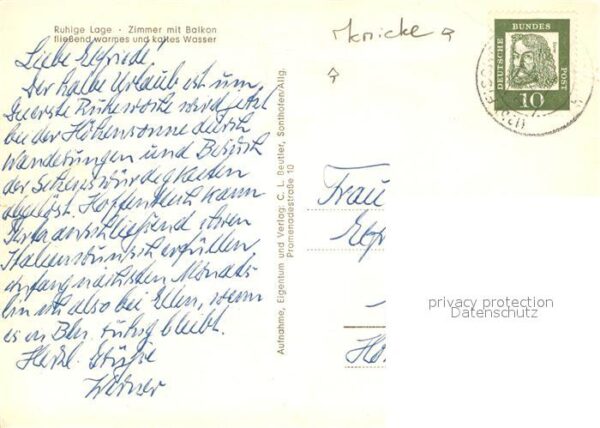 Ruhige Lage · Zimmer mit Balkon
fließend warmes und kaltes Wasser
Liebe Elfriede!
Der halbe Urlaub ist um,
die erste Ruhewoche wird jetzt
bei der Höhensonne durch
Wanderungen und Besuch
der Sehenswürdigkeiten
abgelöst. Hoffentlich kann
anschließend ihren
Italienwunsch erfüllen
anfang nächsten Monats
bin ich also bei Ellen, wenn
es in Bln. ruhig bleibt.
Herzl. Grüße
Werner
Aufnahme, Eigentum und Verlag: C. L. Beutler, Sonthofen/Allg.
Promenadestraße 10
knicke
DEUTSCHE BUNDES POST
10
Frau
privacy protection
Datenschutz